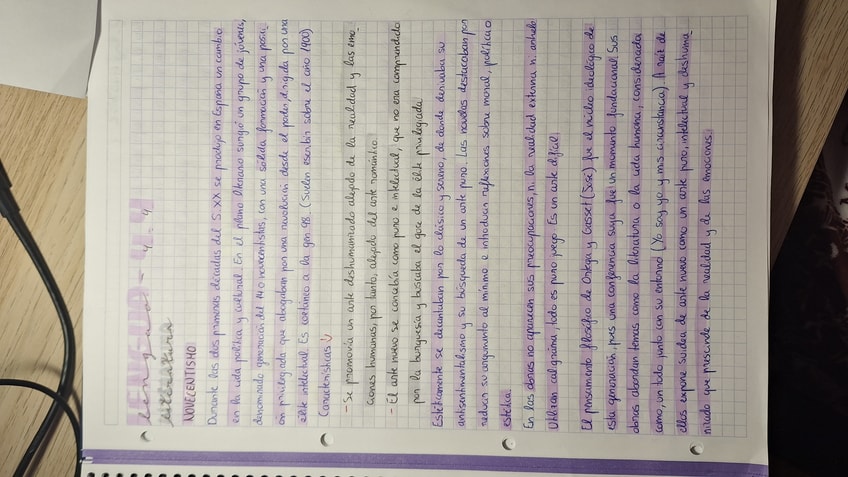 LENGUA - 4.4
lengua - 4.4
Literatura
NOVECENTISMO
Durante las dos primeras décadas del S.XX se produjo en España un cambio
en la vida política y cultural. En el plano literario surgió un grupo de jóvenes,
denominado generación del 14 o novecentistas, con una sólida formación y una posici
ón privilegiada que abogaban por una revolución desde el poder, dirigida por una
élite intelectual. Es coetáneo a la gen 98. (Suelen escribir sobre el año 1900)
Características ↓
- Se promovía un arte deshumanizado alejado de la realidad y las emo
ciones humanas, por tanto, alejado del arte romántico.
- El arte nuevo se concebía como puro e intelectual, que no era comprendido
por la burguesía y buscaba el goce de la élite privilegiada.
Estéticamente se decantaban por lo clásico y sereno, de donde derivaba su
antisentimentalismo y su búsqueda de un arte puro. Las novelas destacaban por
reducir su argumento al mínimo e introducir reflexiones sobre moral, política o
estética.
En las obras no aparecen sus preocupaciones, ni la realidad externa ni anhelo
Utilizan el, todo es puro juego. Es un arte difícil.
El pensamiento filosófico de Ortega y Gasset () fue el núcleo ideológico de
esta generación, pues una conferencia suya fue un momento fundacional. Sus
obras abordan temas como la literatura o la vida humana, considerada
como, un todo junto con su entorno (Yo soy yo y mis circunstancia) A raíz de
ellas expone su idea de arte nuevo como un arte puro, intelectual y deshuma
nizado que prescinde de la realidad y de las emociones.